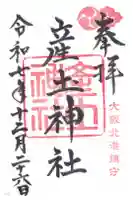 奉拝
大阪北港鎮守
産土神社
令和七年十二月二十六日